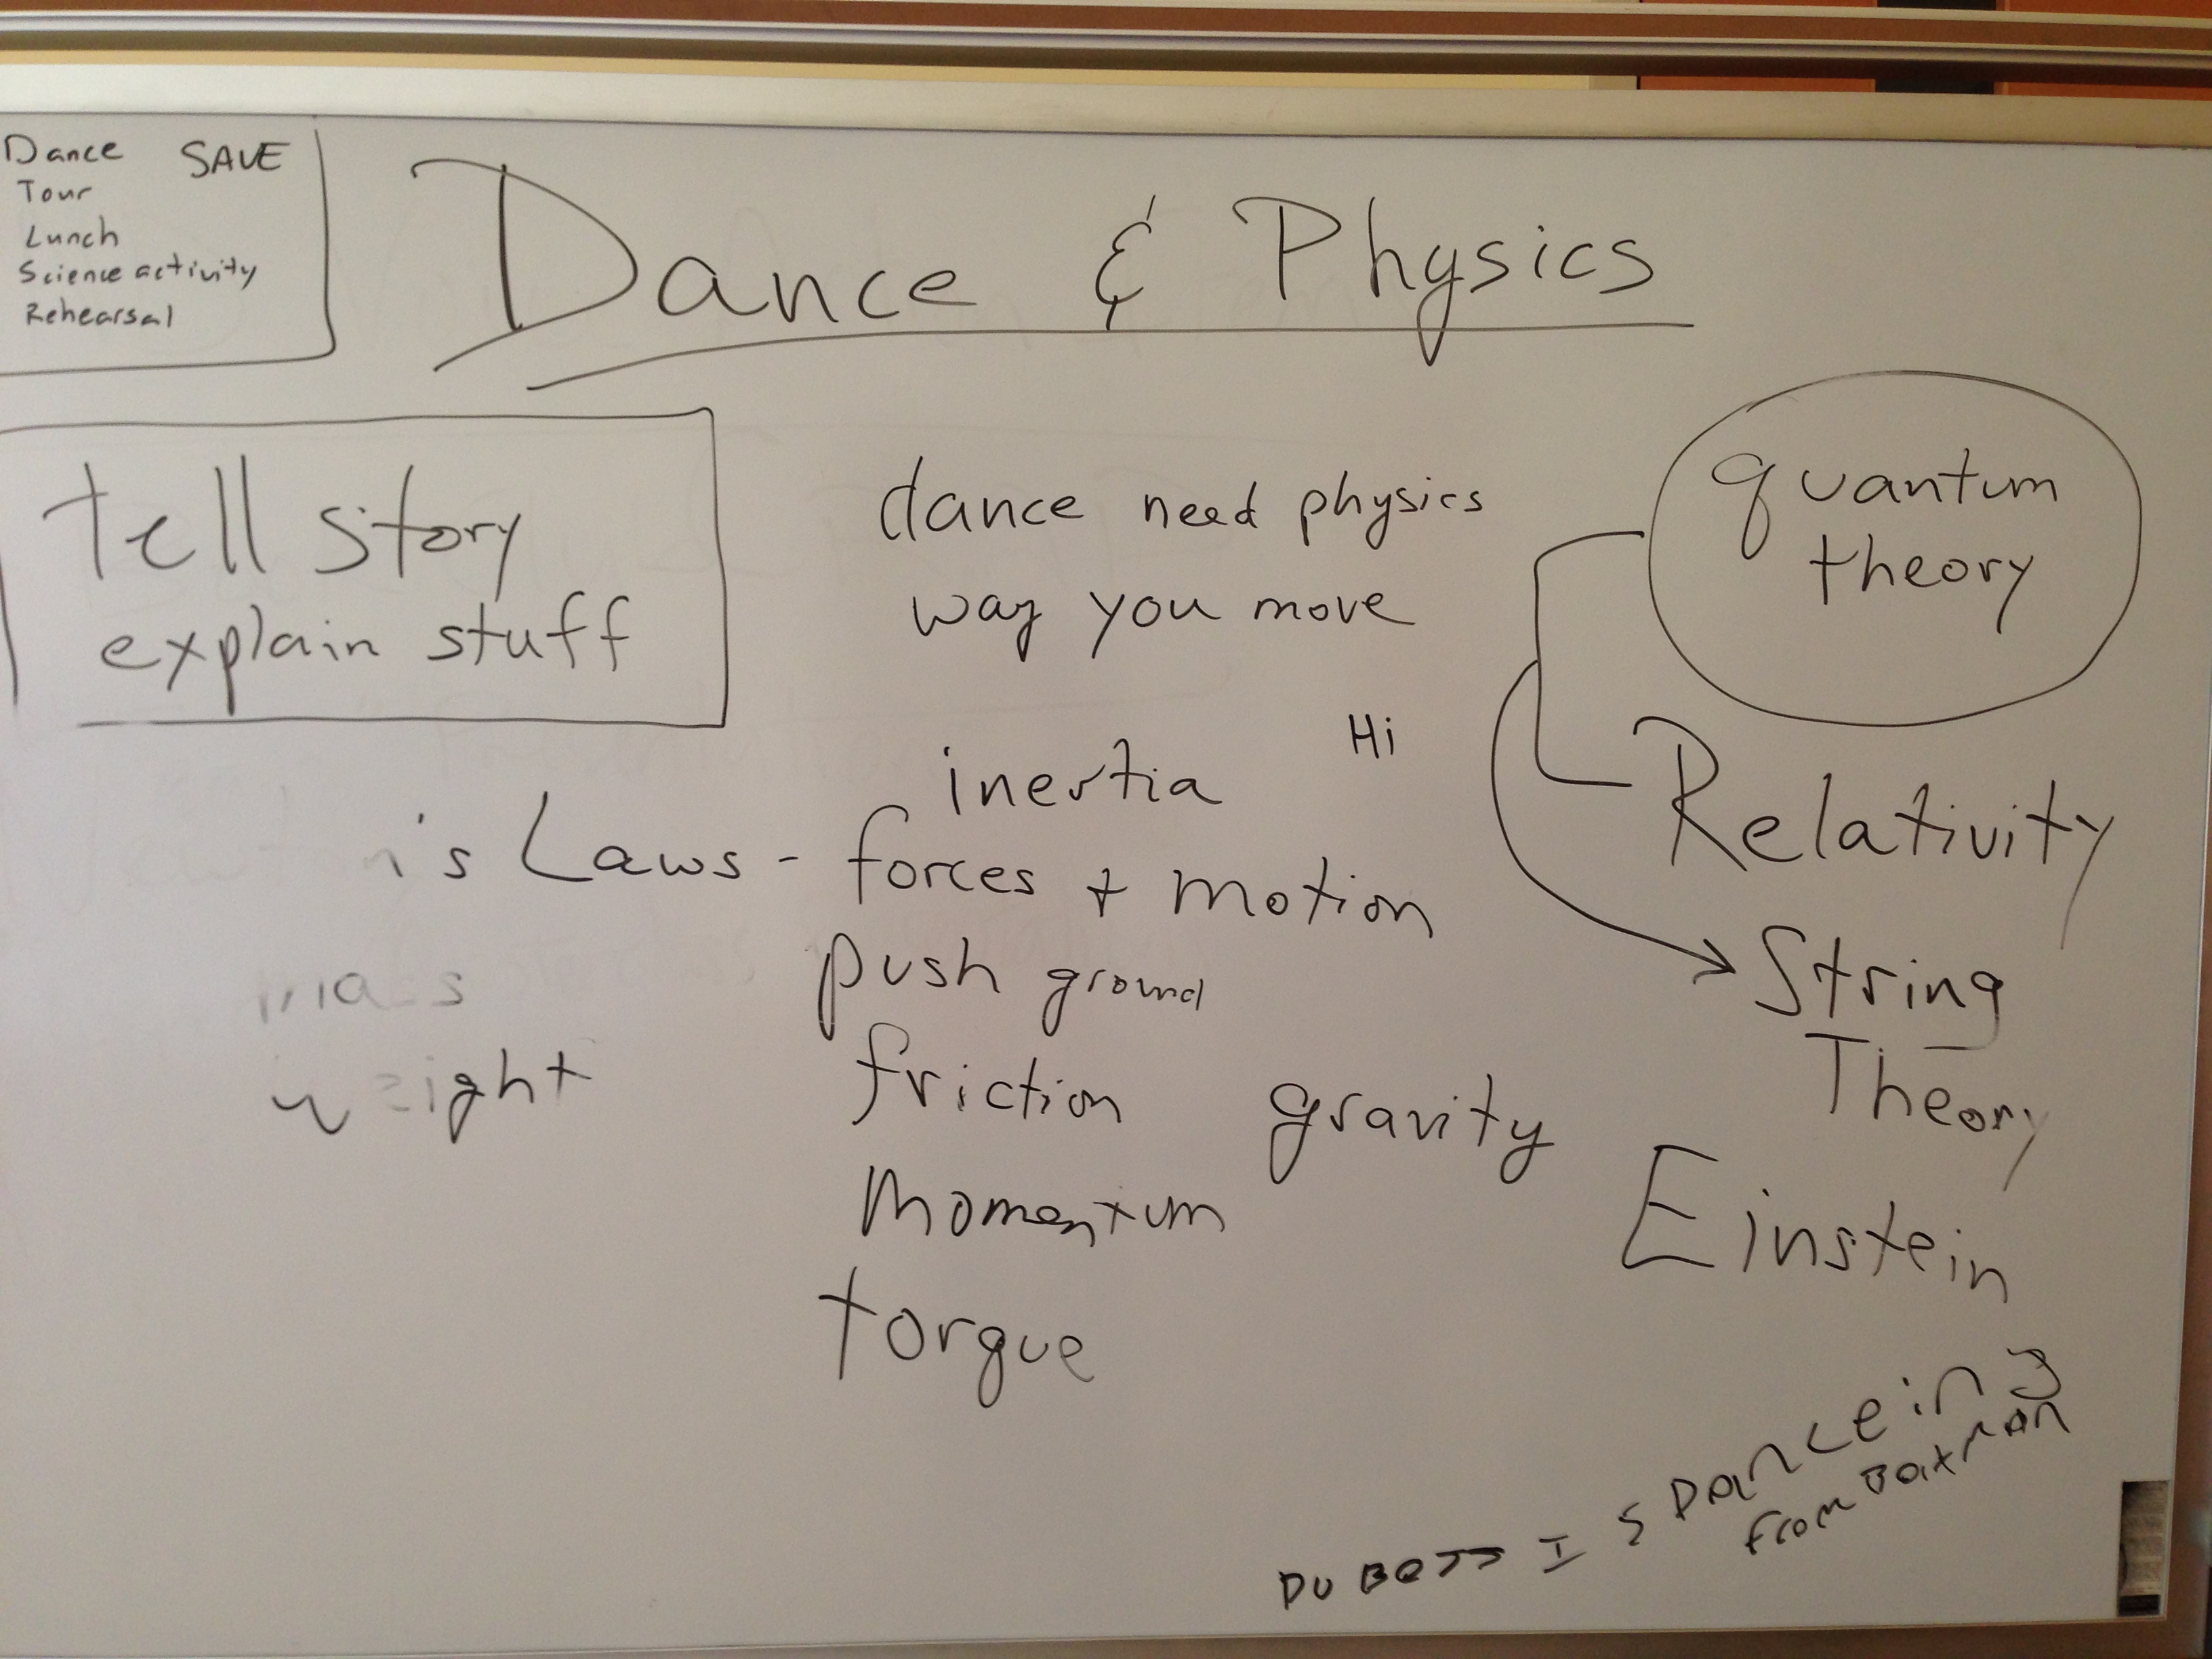 Dance SAVE
Tour
Lunch
Science activity
Rehearsal
Dance & Physics
tell story
explain stuff
dance need physics
way you move
quantum
theory
Hi
inertia
Relativity
Newton's Laws - forces + motion
mass
weight
push ground
friction
gravity
Momentum
torque
String
Theory
Einstein
IS Danceing
From Batman